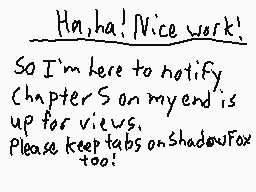 Ha, ha! Nice work!
So I'm here to notify
Chapter 5 on my end is
up for views.
Please keep tabs on ShadowFox
too!